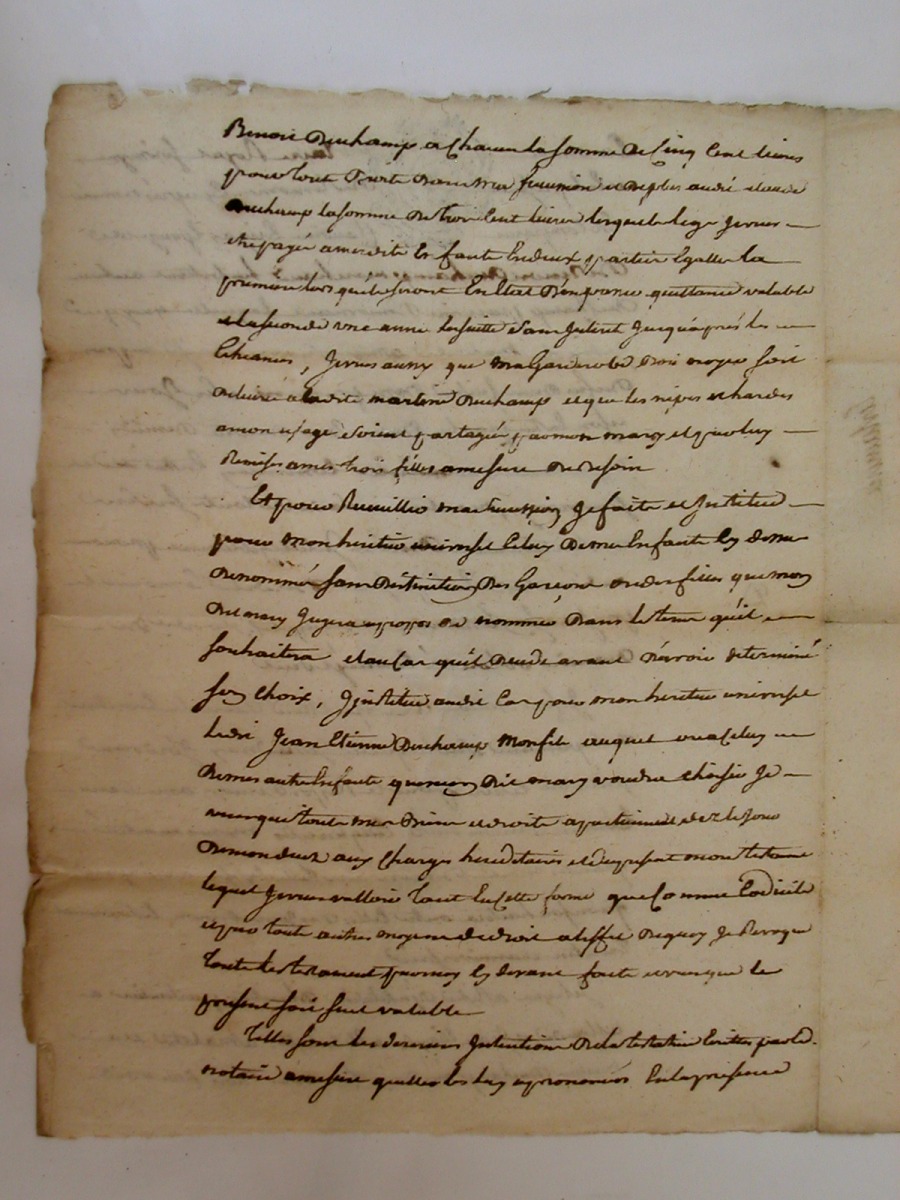 Benoit Duchamp a Chacun la somme de Cinq Cent livres
pour tout droits dans ma succession et de plus audit
Duchamp la somme de trois Cent livres lesquels legs je veux
etre payés a mesdits Enfants En deux parties Egalles la
premiere lors quils seront En Etat d'en passer quittance valable
et la seconde une année Ensuitte sans Interet jusqu'aprés les
Echeances, je veux aussy que ma Garderobe bois noyer soit
delivrée a ladite martine Duchamp et que les nipes et hardes
a mon usage soient partagés par mon mary et par luy
Remises a mes trois filles a mesure de besoin
Et pour Recueillir ma succession je fait et Institue
pour mon heritier universel Celuy de mes Enfants Cy dessus
denommés sans distinction des Garçons ou des filles que mon
dit mary jugera a propos de nommer dans le tems qu'il
souhaitera et au Cas qu'il decede avant d'avoir determiné
son Choix, j'institue audit Cas pour mon heritier universel
ledit Jean Etienne Duchamp mon fils auquel ou a Celuy
de mes autres Enfants que mon dit mary voudra choisir je
veux que tout mes Biens et droits apartiennent dez le jour
de mon decez aux Charges hereditaires et du present mon testament
lequel je veux valloir tant En Cette forme que Comme Codicile
et par toute autres moyens de droit a l'effet dequoy je Revoque
tout les testament par moy Cy devant faits et veux que le
present soit seul valable
Telles sont les dernieres Intentions de la testatrice Ecrites par led.
notaire a mesure quelle les luy a prononcées En la presence